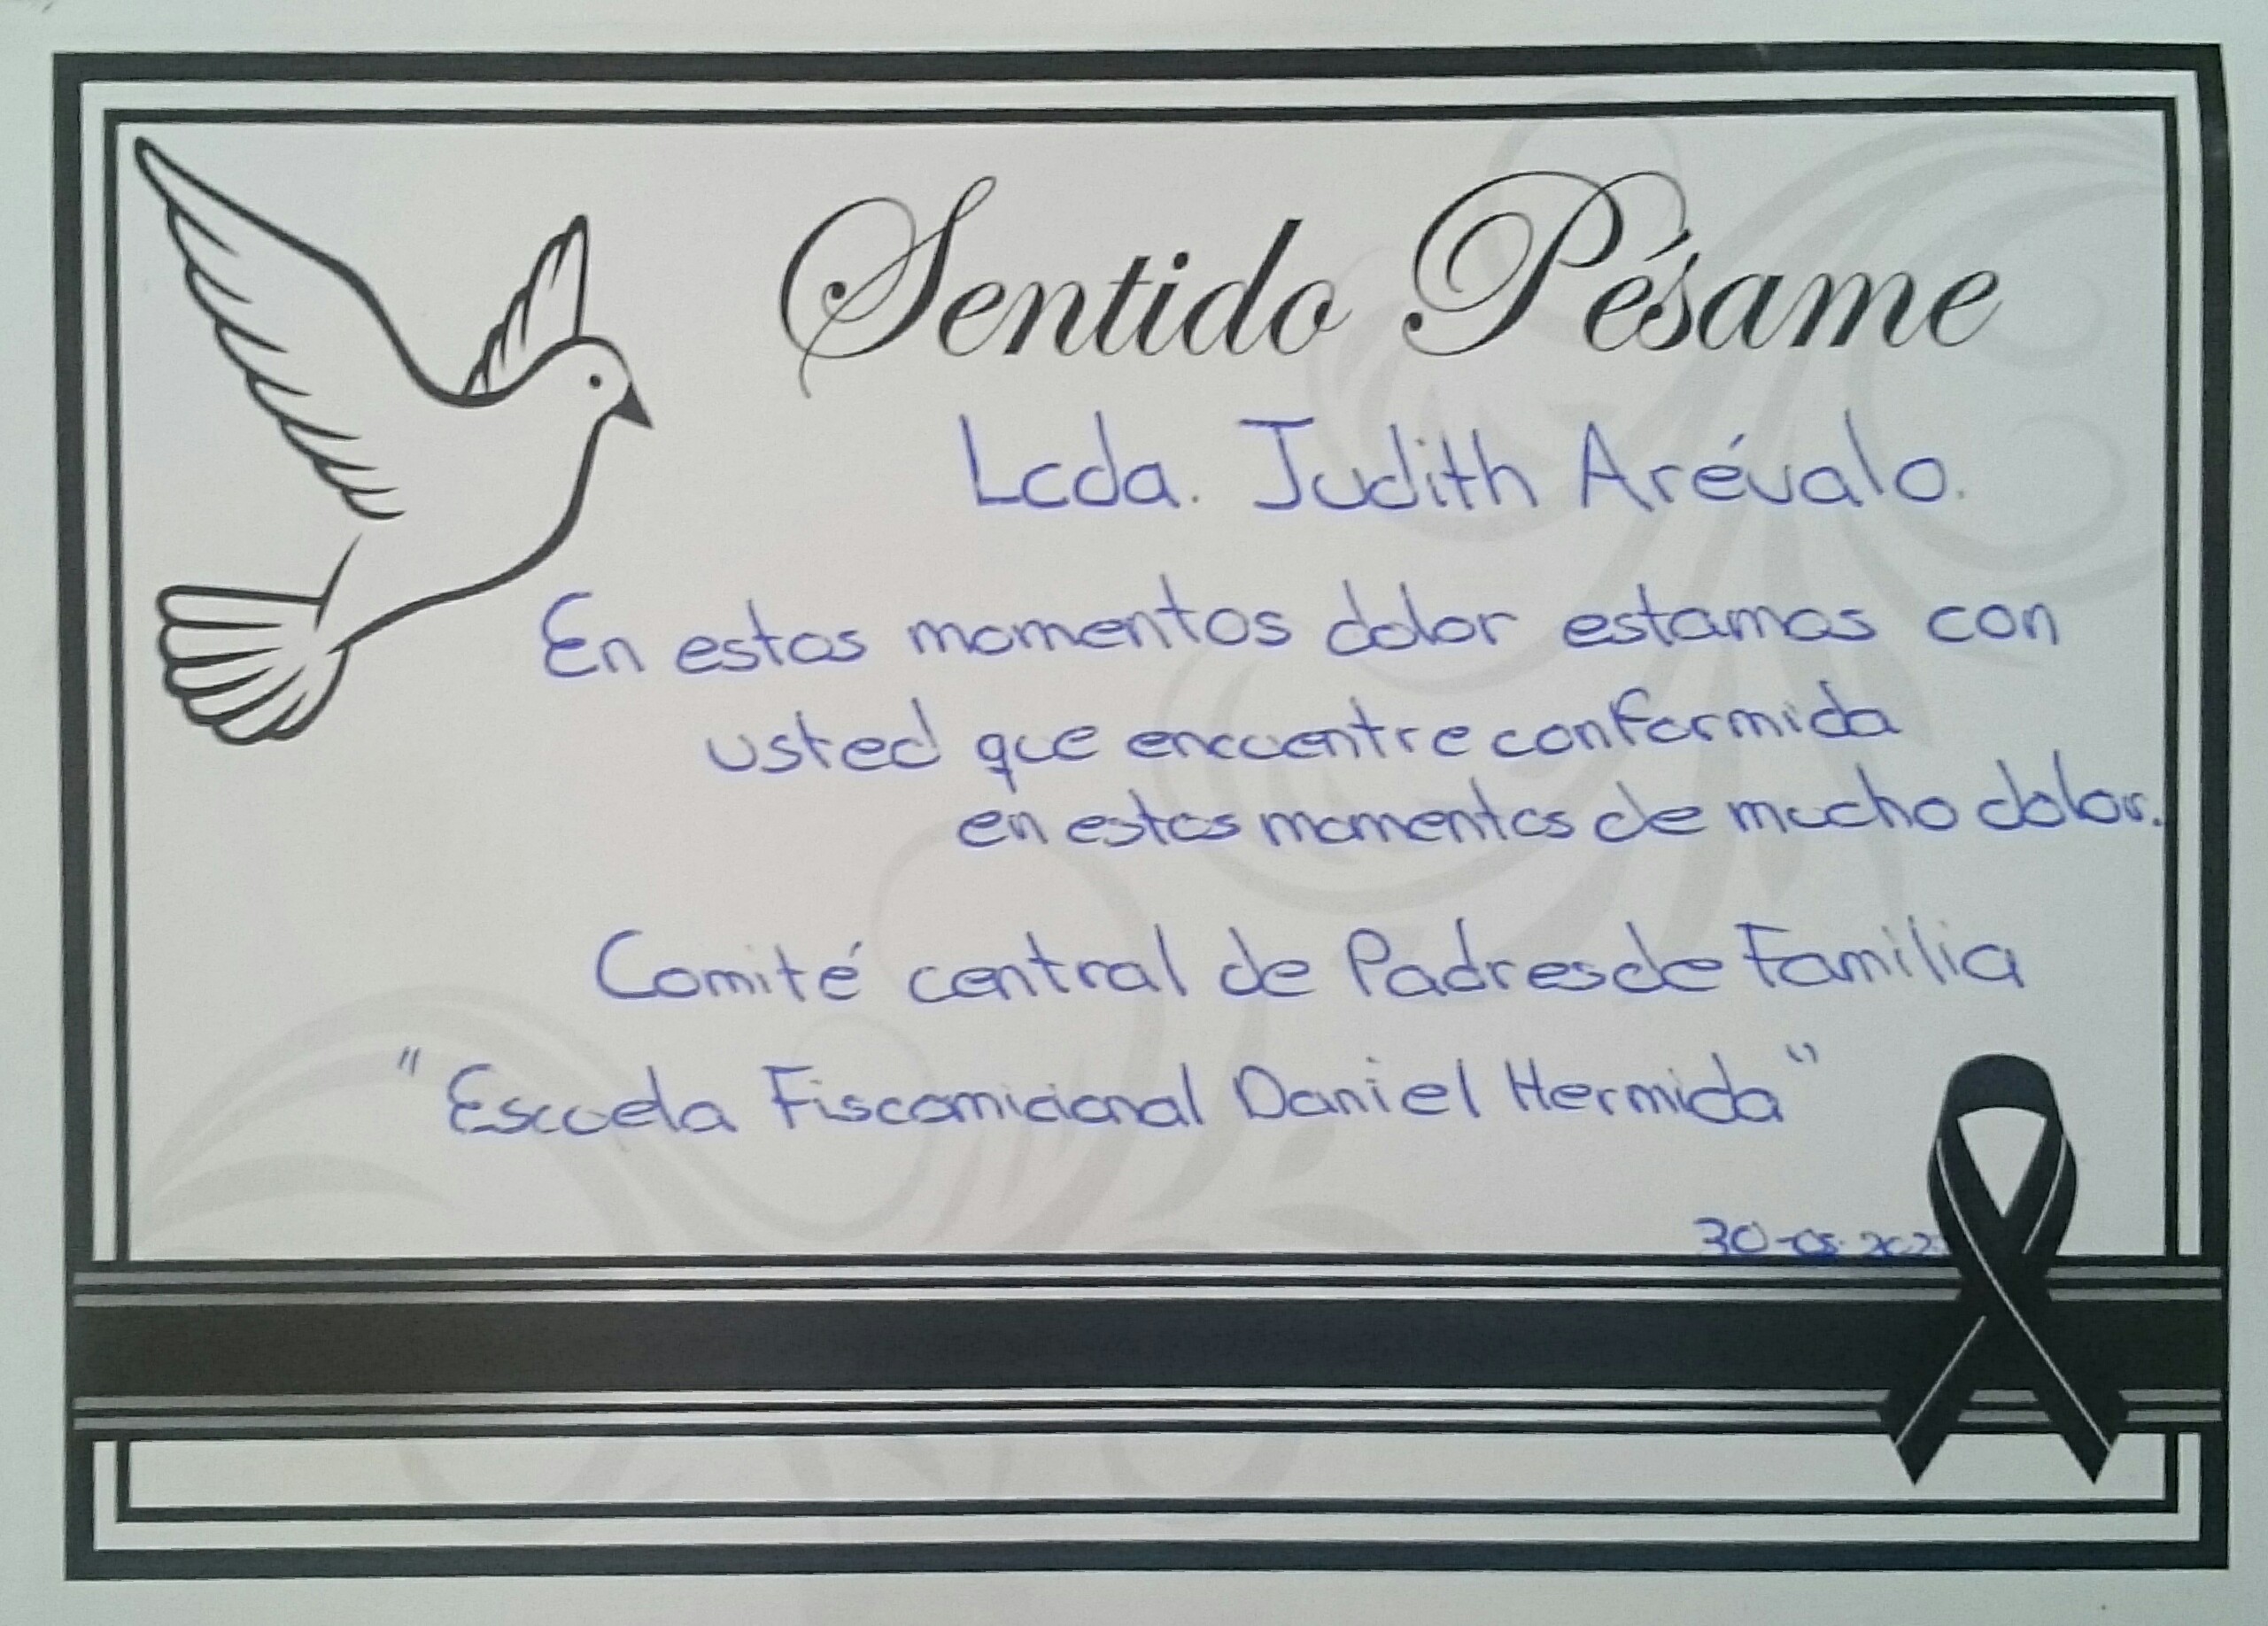 Sentido Pésame
Lcda. Judith Arévalo.
En estos momentos dolor estamos con
usted que encuentre conformida
en estos momentos de mucho dolor.
Comité central de Padres de Familia
"Escuela Fiscomicional Daniel Hermida"